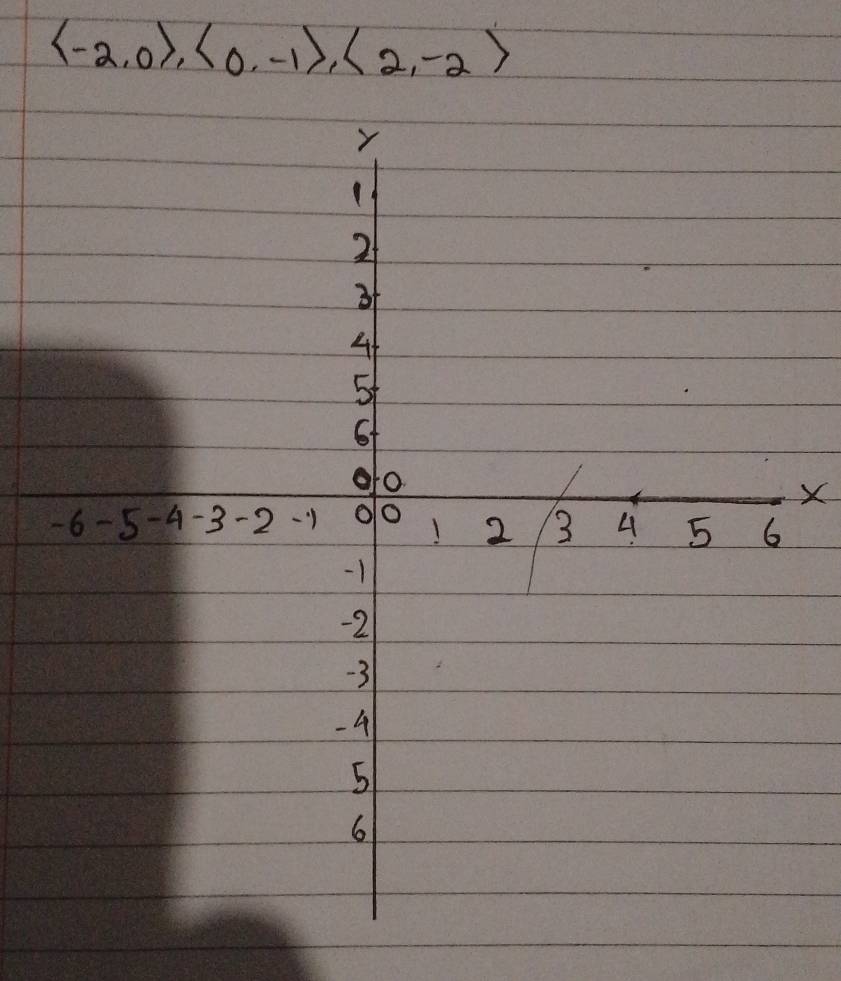 ⟨-2,0⟩,⟨0,-1⟩,⟨2,-2⟩
Y
1
2
3
4
5
6
0 0
X
-6 -5 -4 -3 -2 -1 0 0 1 2 3 4 5 6
-1
-2
-3
-4
5
6